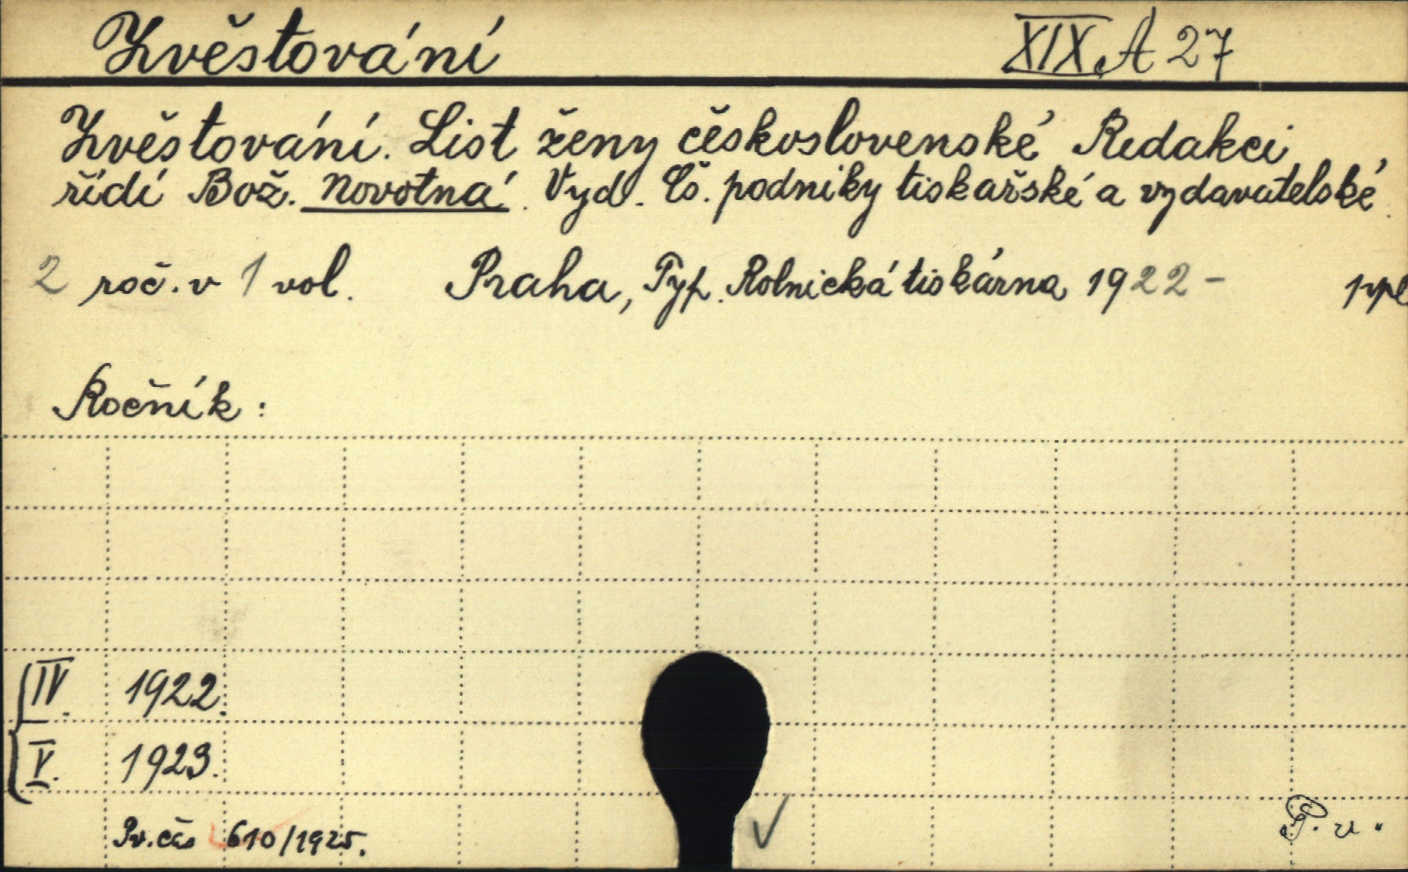 Zvěstování XIX A 27
Zvěstování. List ženy československé Redakci
řídí Bož. Novotná. Vyd. Čs. podniky tiskařské a vydavatelské.
2 roč. v 1 vol. Praha, Typ. Rolnická tiskárna 1922 -
Ročník:
IV. 1922.
V. 1923.
Pv. čes 610/1925.